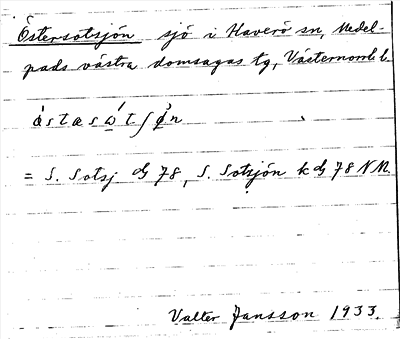 Östersotsjön sjö i Haverö sn, Medel-
pads västra domsagas tg, Västernorrl. l.
ö́stæsωtʃø̀n
= S. Sotsj dg 78, S. Sotsjön k dg 78 NM.
Valter Jansson 1933.